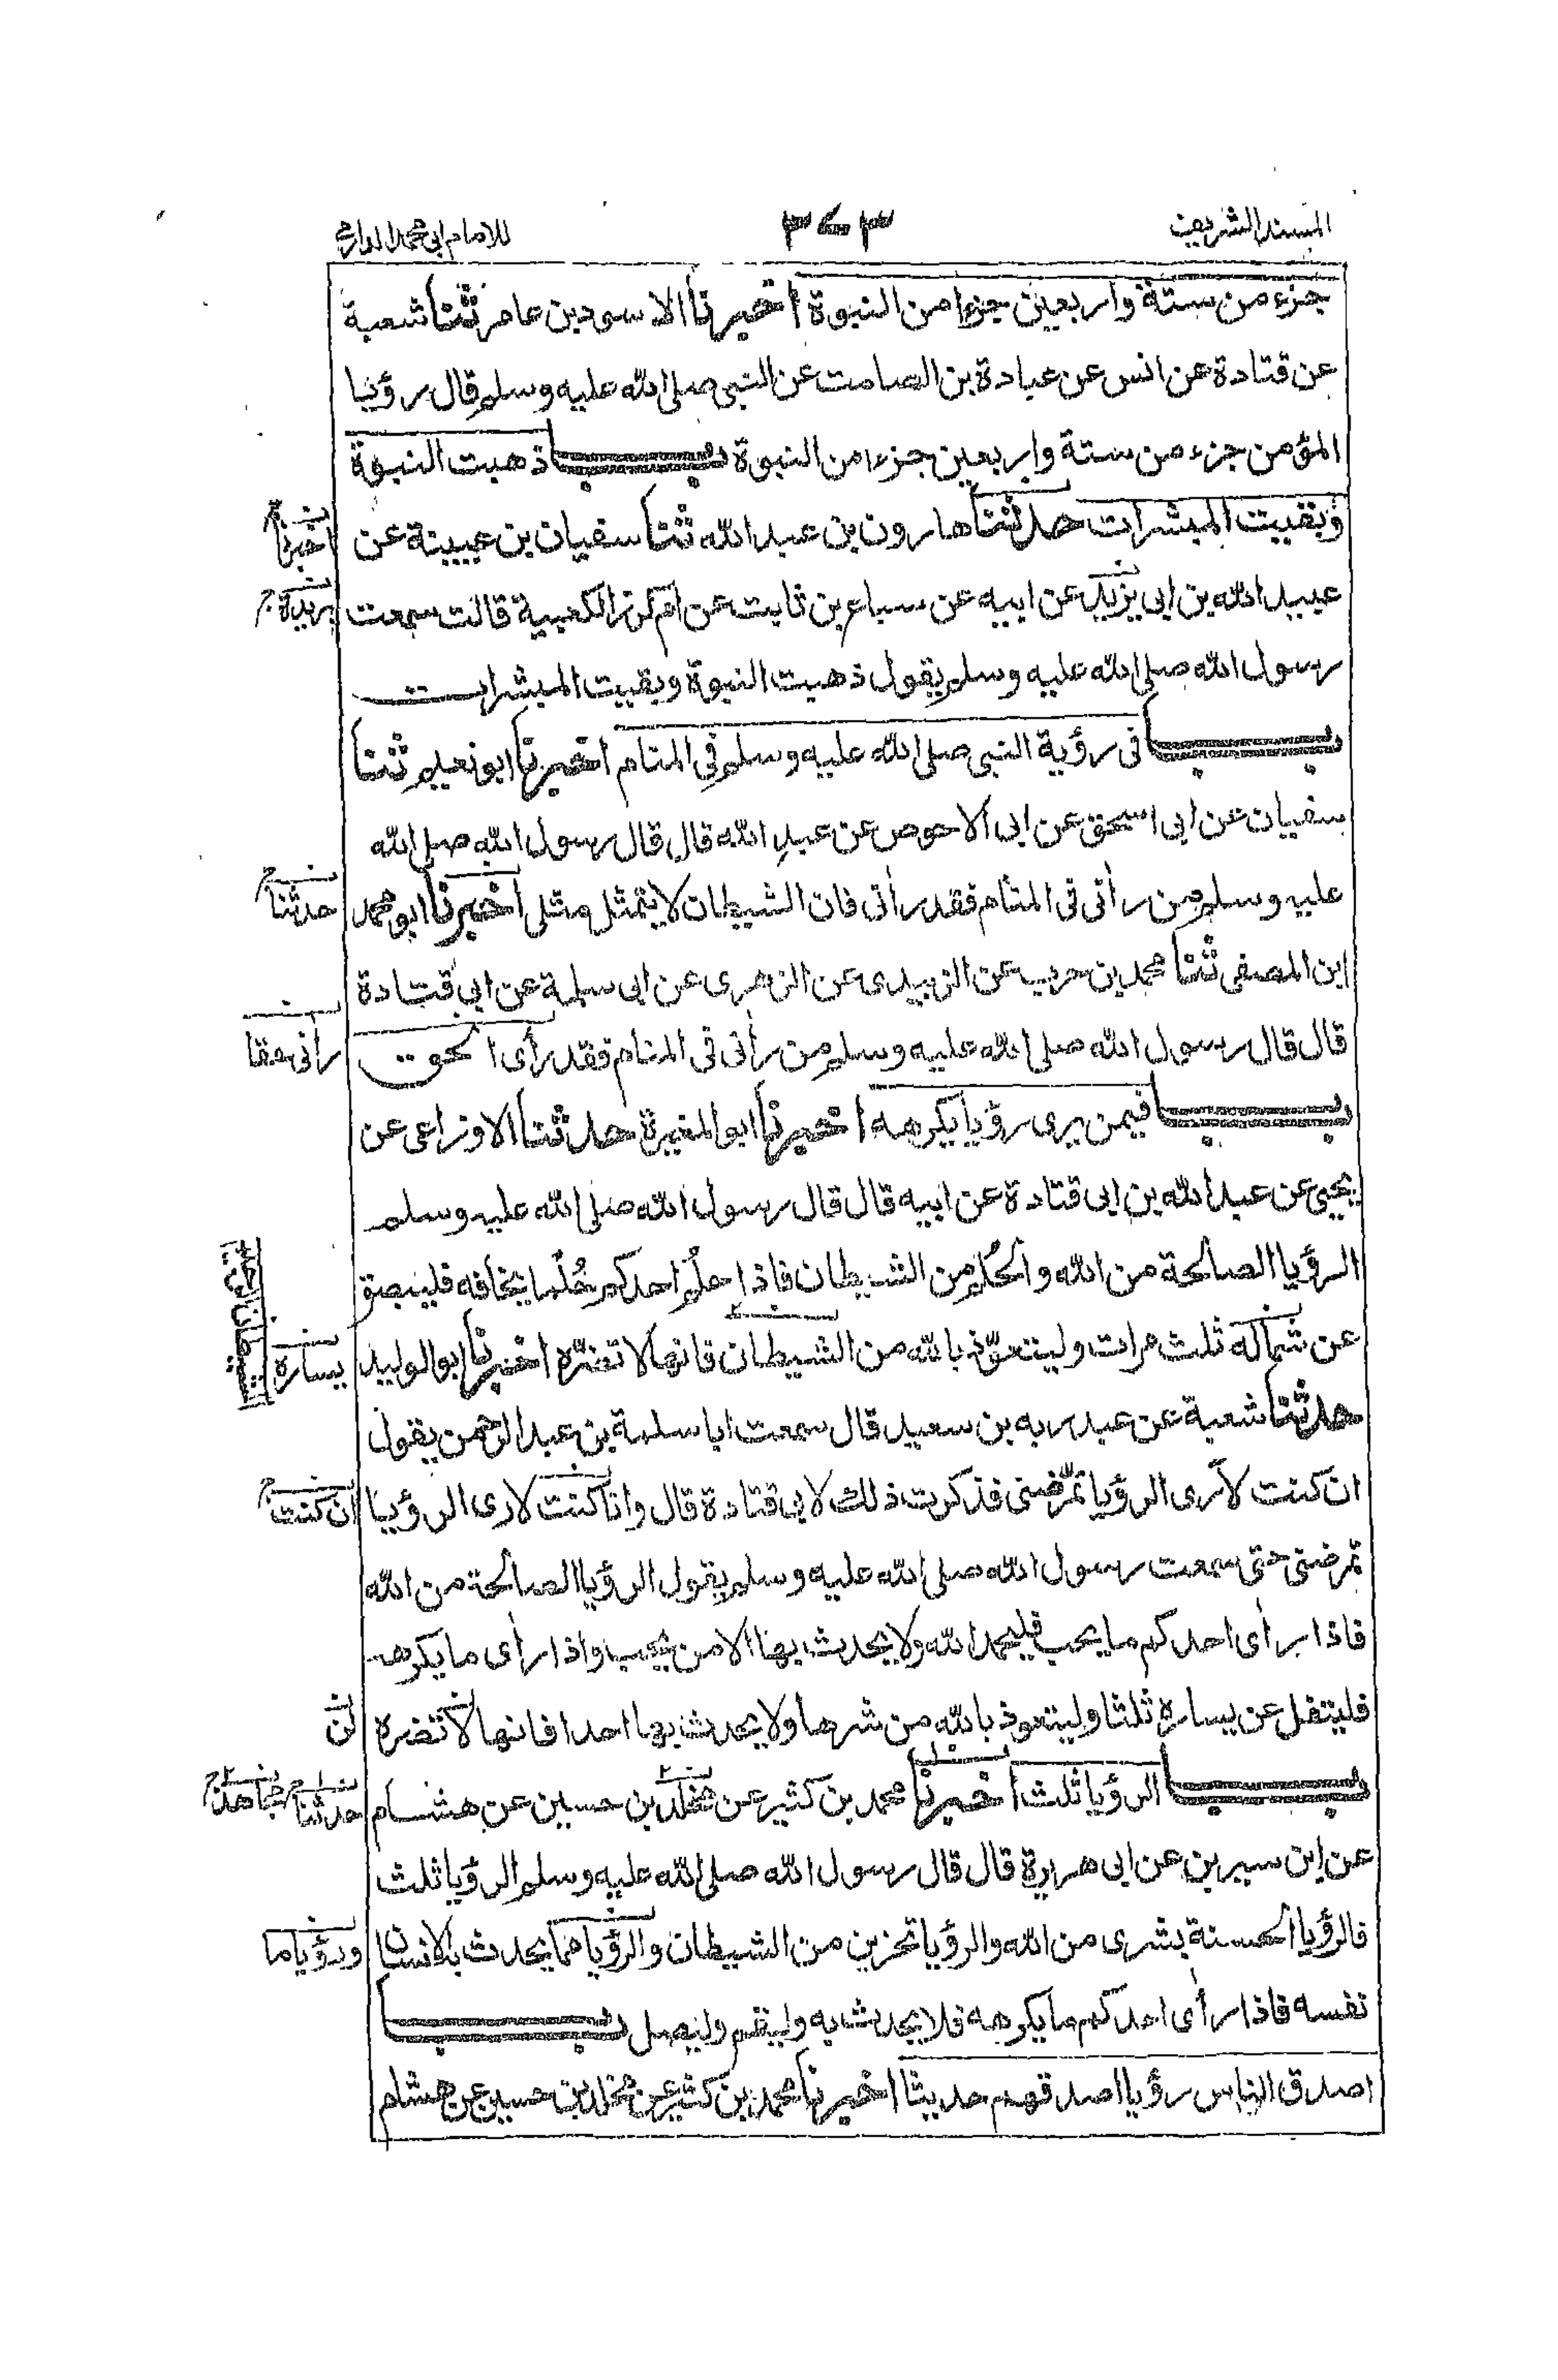 المسند الشريف
٣٧٣
للامام ابى محمد الدارمى
جزء من ستة واربعين جزءا من النبوة اخبرنا الاسود بن عامر ثنا شعبة
عن قتادة عن انس عن عبادة بن الصامت عن النبى صلى الله عليه وسلم قال رؤيا
المؤمن جزء من ستة واربعين جزءا من النبوة باب ذهبت النبوة
وبقيت المبشرات حدثنا هارون بن عبد الله ثنا سفيان بن عيينة عن
اخبرنا
عبيد الله بن ابى يزيد عن ابيه عن سباع بن ثابت عن ام كرز الكعبية قالت سمعت
بريدة
رسول الله صلى الله عليه وسلم يقول ذهبت النبوة وبقيت المبشرات
باب فى رؤية النبى صلى الله عليه وسلم فى المنام اخبرنا ابو نعيم ثنا
سفيان عن ابى اسحق عن ابى الاحوص عن عبد الله قال قال رسول الله صلى الله
عليه وسلم من رأنى فى المنام فقد رأنى فان الشيطان لا يتمثل مثلى اخبرنا ابو محمد
حدثنا
ابن المصفى ثنا محمد بن حرب عن الزبيدى عن الزهرى عن ابى سلمة عن ابى قتادة
قال قال رسول الله صلى الله عليه وسلم من رأنى فى المنام فقد رأى الحق
رأنى حقا
باب فيمن يرى رؤيا يكرهه اخبرنا ابو المغيرة حدثنا الاوزاعى عن
يحيى عن عبد الله بن ابى قتادة عن ابيه قال قال رسول الله صلى الله عليه وسلم
الرؤيا الصالحة من الله والحُلم من الشيطان فاذا حلُم احدكم حُلُما يخافه فليبصق
عن شماله ثلث مرات وليتعوّذ بالله من الشيطان فانها لا تضرّه اخبرنا ابو الوليد
يساره
حدثنا شعبة عن عبد ربه بن سعيد قال سمعت ابا سلمة بن عبد الرحمن يقول
ان كنت لأرى الرؤيا تمرّضنى فذكرت ذلك لابى قتادة قال وانا كنت لارى الرؤيا
ان كنت
تمرضنى حتى سمعت رسول الله صلى الله عليه وسلم يقول الرؤيا الصالحة من الله
فاذا رأى احدكم ما يحب فليحمد الله ولا يحدث بها الا من يحب واذا رأى ما يكره
فليتفل عن يساره ثلثا وليتعوذ بالله من شرها ولا يحدث بها احدا فانها لا تضره
لن
باب الرؤيا ثلث اخبرنا محمد بن كثير عن مخلد بن حسين عن هشام
حدثنا مجاهد
عن ابن سيرين عن ابى هريرة قال قال رسول الله صلى الله عليه وسلم الرؤيا ثلث
فالرؤيا الحسنة بشرى من الله والرؤيا تحزين من الشيطان والرؤيا مما يحدث به الانسان
ورؤيا ما
نفسه فاذا رأى احدكم ما يكرهه فلا يحدث به وليقم وليصل باب
اصدق الناس رؤيا اصدقهم حديثا اخبرنا محمد بن كثير عن مخلد بن حسين عن هشام